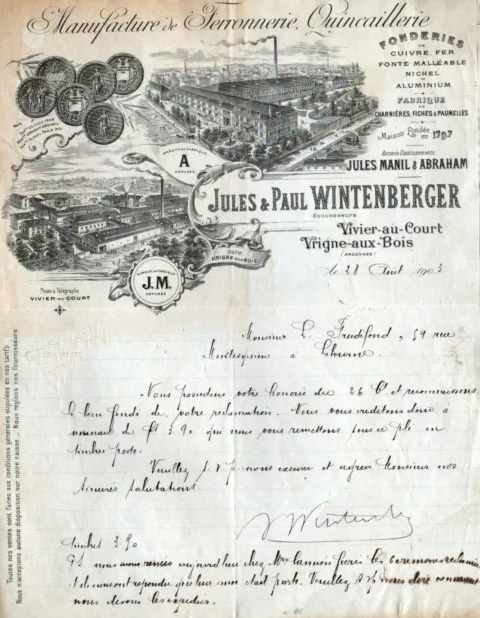 Manufacture de Ferronnerie, Quincaillerie
FONDERIES
DE
CUIVRE, FER
FONTE MALLÉABLE
NICKEL
ET
ALUMINIUM
FABRIQUE
DE
CHARNIÈRES, FICHES & PAUMELLES
Maison Fondée
en 1797
Anciens Etablissements
JULES MANIL & ABRAHAM
MARQUE DE FABRIQUE
A
DÉPOSÉE
JULES & PAUL WINTENBERGER
Successeurs
Vivier-au-Court
Vrigne-aux-Bois
(ARDENNES)
Gare
VRIGNE-AUX-BOIS
MARQUE DE FABRIQUE
J.M.
DÉPOSÉE
Poste & Télégraphe
VIVIER-AU-COURT
le 28 Août 1903
Monsieur 59 rue
à Libourne
Nous possédons votre honorée du 26 Ct et reconnaissons
le bien fondé de votre réclamation. Nous vous créditons donc
de f 3.90 que nous vous remettons sous ce pli en
timbres poste.
Veuillez s.v.p. nous excuser et agréer Monsieur nos
sincères salutations.
Wintenberger
Timbres 3.90
nous avons aujourd'hui chez
répondu que Veuillez nous dire comment
nous devons les expédier.
Toutes nos ventes sont faites aux conditions générales stipulées en nos tarifs
Nous n'acceptons aucune disposition sur notre caisse _ Nous réglons nos fournisseurs